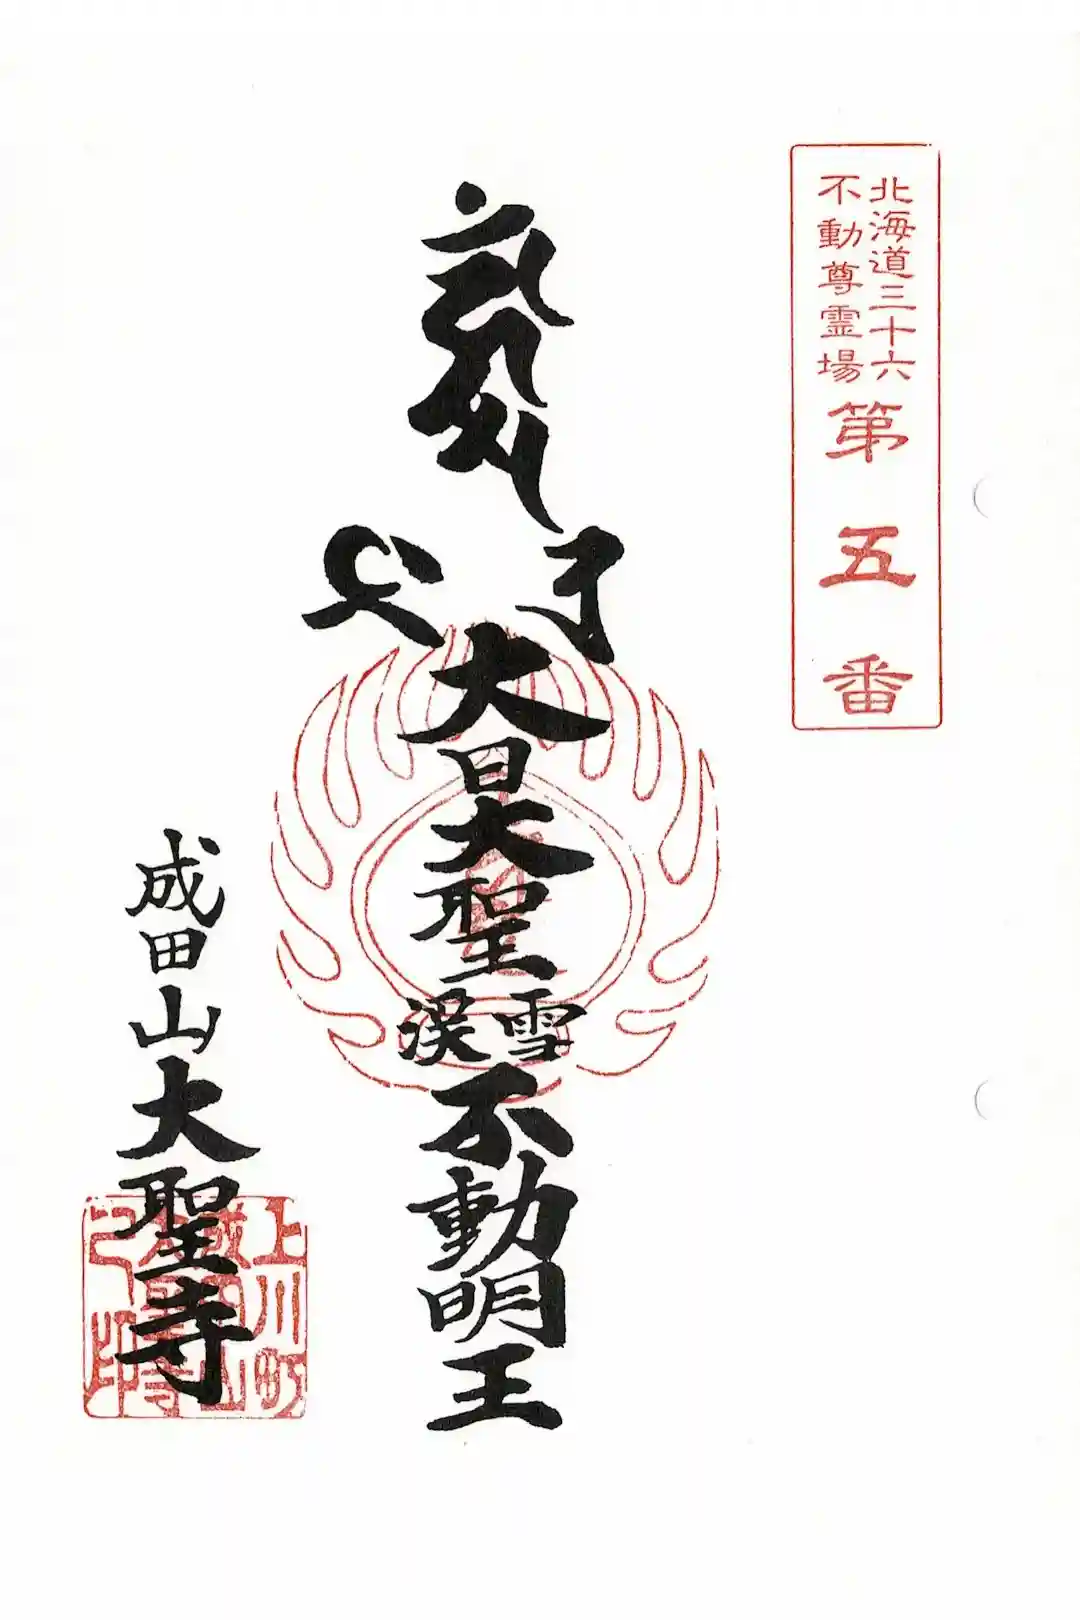 北海道三十六
不動尊霊場
第五番
大日大聖
雪渓
不動明王
成田山大聖寺
上川町
成田山
大聖寺
之印